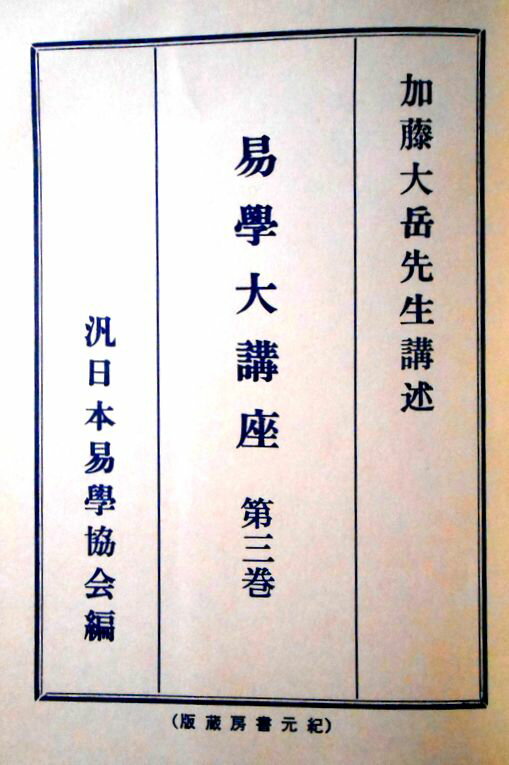 加藤大岳先生講述
易學大講座 第三巻
汎日本易學協会編
(紀元書房蔵版)